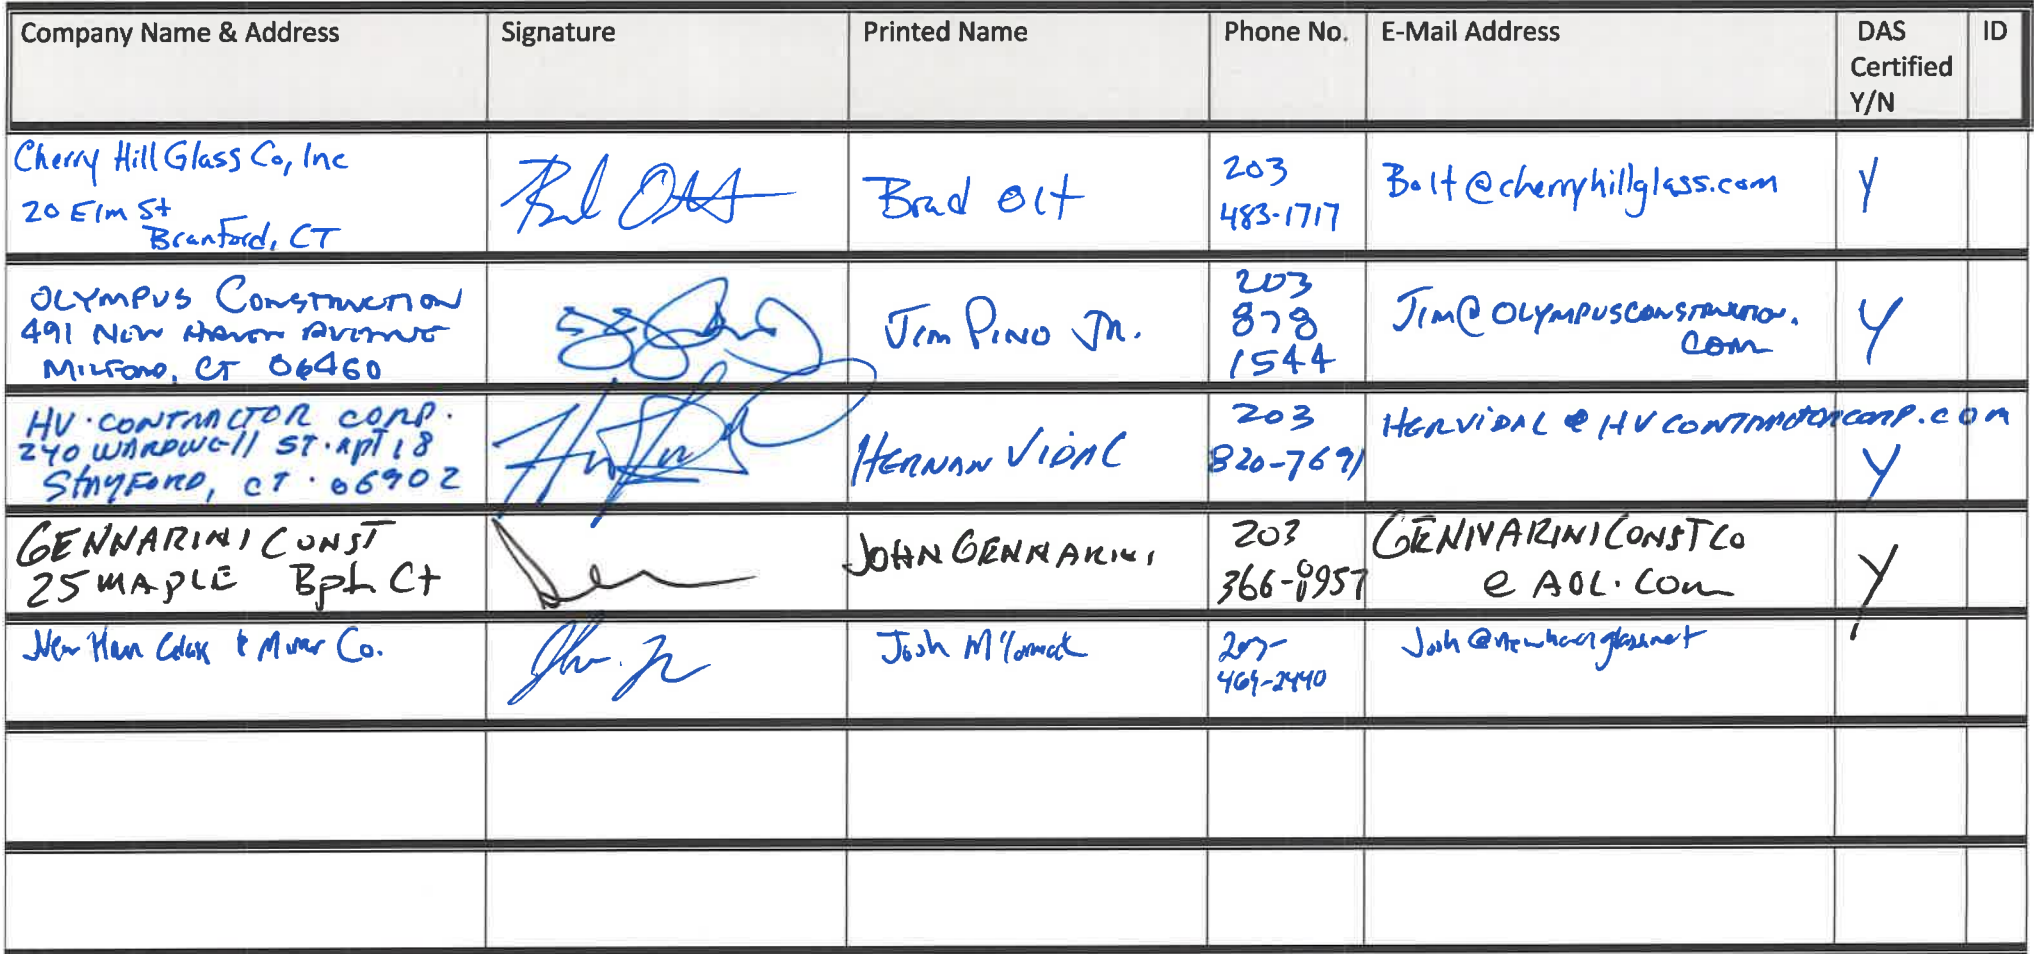 Company Name & Address Signature Printed Name Phone No. E-Mail Address DAS Certified Y/N ID
Cherry Hill Glass Co, Inc
20 Elm St
Branford, CT
Brad Olt
203
483-1717
Bolt@cherryhillglass.com
Y
OLYMPUS CONSTRUCTION
491 NEW HAVEN AVENUE
MILFORD, CT 06460
JIM PINO JR.
203
878
1544
JIM@OLYMPUSCONSTRUCTION.
COM
Y
HV. CONTRACTOR CORP.
240 WARDWELL ST. APT 18
STAMFORD, CT. 06902
HERNAN VIDAL
203
820-7691
HERVIDAL@HVCONTRACTORCORP.COM
Y
GENNARINI CONST
25 MAPLE Bpt Ct
JOHN GENNARINI
203
366-0957
GENNARINICONSTCO
@ AOL.COM
Y
New Haven Glass & Mirror Co.
Josh McCormack
203-
469-2440
Josh@newhavenglass.net